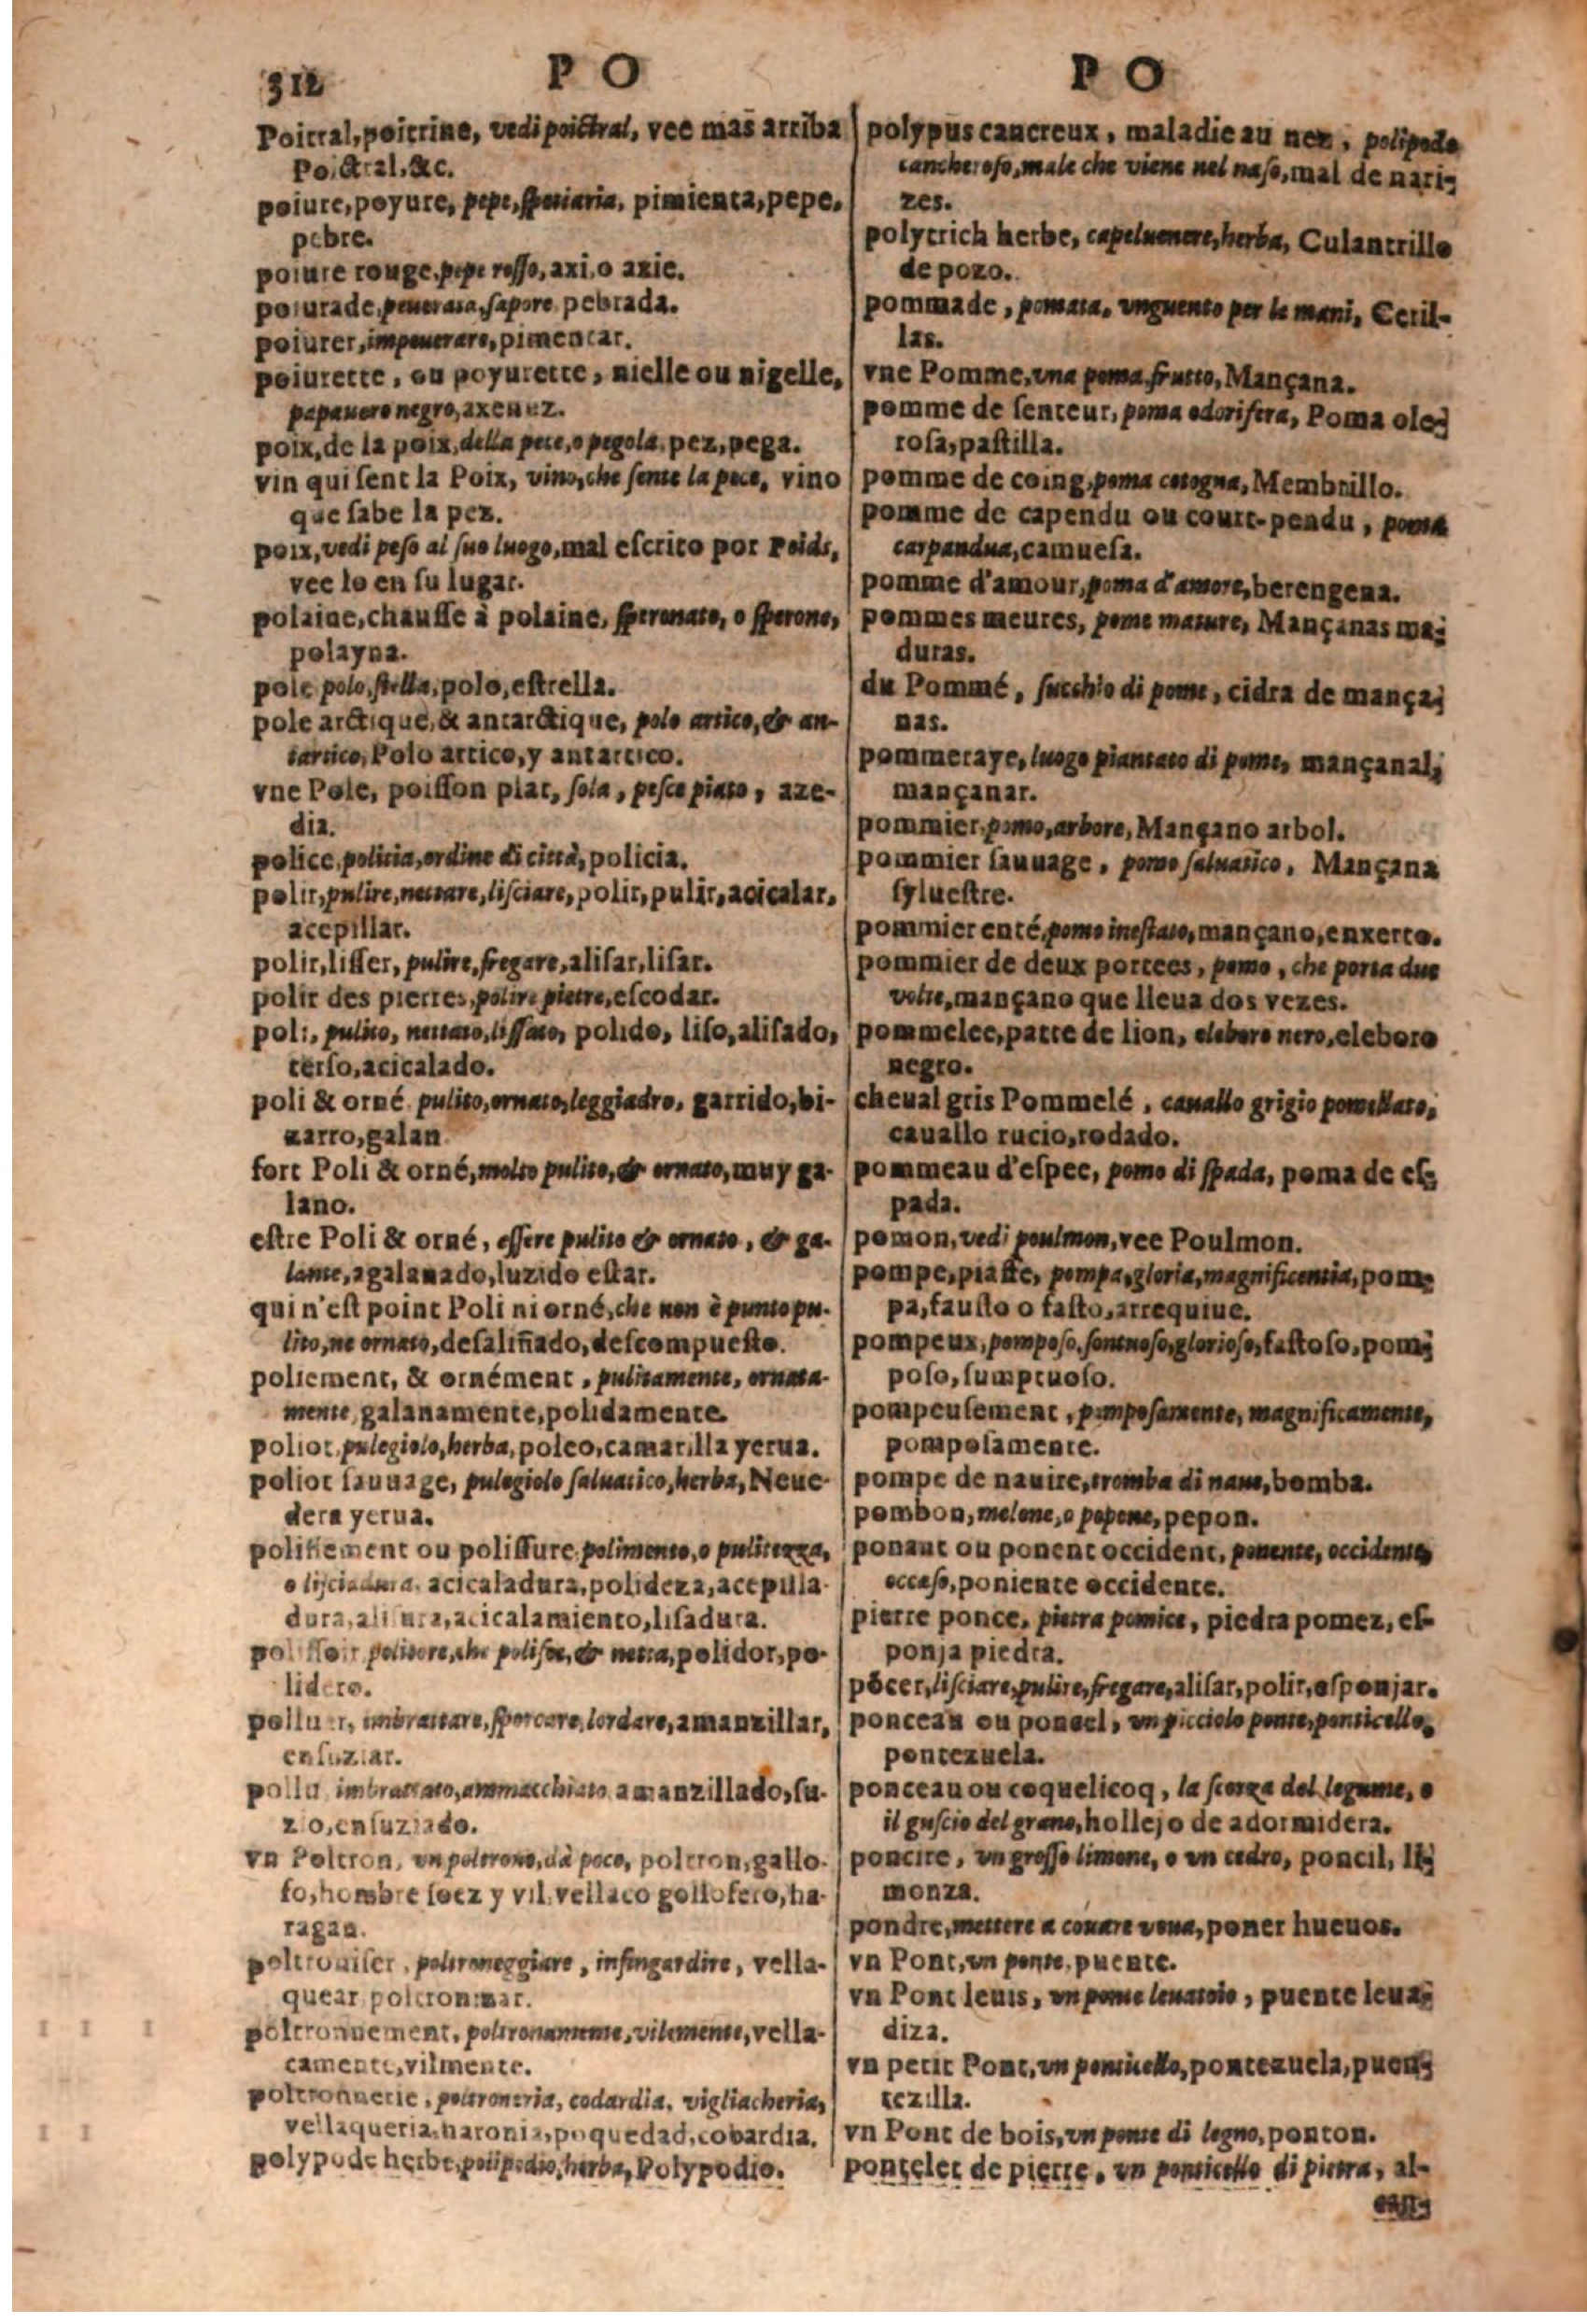 312
P O
P O
Poitral, poitrine, vedi poictral, vee mas arriba
Poictral, &c.
poiure, poyure, pepe, spetiaria, pimienta, pepe,
pebre.
poiure rouge, pepe rosso, axi, o axie.
poiurade, peuerata, sapore, pebrada.
poiurer, impeuerare, pimentar.
poiurette, ou poyurette, nielle ou nigelle,
papauero negro, axenuz.
poix, de la poix, della pece, o pegola, pez, pega.
vin qui ſent la Poix, vino, che ſente la pece, vino
que ſabe la pez.
poix, vedi peſo al ſuo luogo, mal eſcrito por Poids,
vee lo en ſu lugar.
polaine, chauſſe à polaine, ſperonato, o ſperone,
polayna.
pole polo, ſtella, polo, eſtrella.
pole arctique, & antarctique, polo artico, & an-
tartico, Polo artico, y antartico.
vne Pole, poiſſon plat, ſola, peſce piato, aze-
dia.
police, politia, ordine di città, policia.
polir, pulire, nettare, liſciare, polir, pulir, acicalar,
acepillar.
polir, liſſer, pulire, fregare, aliſar, liſar.
polir des pierres, polire pietre, eſcodar.
poli, pulito, nettato, liſſato, polido, liſo, aliſado,
terſo, acicalado.
poli & orné, pulito, ornato, leggiadro, garrido, bi-
zarro, galan
fort Poli & orné, molto pulito, & ornato, muy ga-
lano.
eſtre Poli & orné, eſſere pulito & ornato, & ga-
lante, agalanado, luzido eſtar.
qui n'eſt point Poli ni orné, che non è punto pu-
lito, ne ornato, deſaliñado, deſcompueſto.
poliement, & ornément, pulitamente, ornata-
mente, galanamente, polidamente.
poliot, pulegiolo, herba, poleo, camarilla yerua.
poliot ſauuage, pulegiolo ſaluatico, herba, Neue-
dera yerua.
poliſſement ou poliſſure, polimento, o pulitezza,
o liſciadura, acicaladura, polideza, acepilla-
dura, aliſura, acicalamiento, liſadura.
poliſſoir, politore, che poliſce, & netta, polidor, po-
lidero.
polluer, imbrattare, ſporcare, lordare, amanzillar,
enſuziar.
pollu, imbrattato, ammacchiato, amanzillado, ſu-
zio, enſuziado.
vn Poltron, vn poltrone, dà poco, poltron, gallo-
fo, hombre ſoez y vil, vellaco gollofero, ha-
ragan.
poltroniſer, poltroneggiare, infingardire, vella-
quear, poltronizar.
poltronnement, poltronamente, vilmente, vella-
camente, vilmente.
poltronnerie, poltroneria, codardia, vigliacheria,
vellaqueria, haronia, poquedad, cobardia.
polypode herbe, polipodio, herba, Polypodio.
polypus cancreux, maladie au nez, polipode
cancheroſo, male che viene nel naſo, mal de nari-
zes.
polytrich herbe, capeluenere, herba, Culantrillo
de pozo.
pommade, pomata, vnguento per le mani, Ceril-
las.
vne Pomme, vna poma, frutto, Mançana.
pomme de ſenteur, poma odorifera, Poma olo-
roſa, paſtilla.
pomme de coing, poma cotogna, Membrillo.
pomme de capendu ou court-pendu, poma
carpandua, camueſa.
pomme d'amour, poma d'amore, berengena.
pommes meures, pome mature, Mançanas ma-
duras.
du Pommé, ſucchio di pome, cidra de mança-
nas.
pommeraye, luogo piantato di pome, mançanal,
mançanar.
pommier, pomo, arbore, Mançano arbol.
pommier ſauuage, pomo ſaluatico, Mançana
ſylueſtre.
pommier enté, pomo ineſtato, mançano, enxerto.
pommier de deux portees, pomo, che porta due
volte, mançano que lleua dos vezes.
pommelee, patte de lion, eleboro nero, eleboro
negro.
cheual gris Pommelé, cauallo grigio pomellato,
cauallo rucio, rodado.
pommeau d'eſpee, pomo di ſpada, poma de eſ-
pada.
pomon, vedi poulmon, vee Poulmon.
pompe, piaffe, pompa, gloria, magnificentia, pom-
pa, fauſto o faſto, arrequiue.
pompeux, pompoſo, ſontuoſo, glorioſo, faſtoſo, pom-
poſo, ſumptuoſo.
pompeuſement, pompoſamente, magnificamente,
pompoſamente.
pompe de nauire, tromba di naue, bomba.
pombon, melone, o popone, pepon.
ponant ou ponent occident, ponente, occidente,
occaſo, poniente occidente.
pierre ponce, pietra pomice, piedra pomez, eſ-
ponja piedra.
põcer, liſciare, pulire, fregare, aliſar, polir, eſponjar.
ponceau ou poncel, vn picciolo ponte, ponticello,
pontezuela.
ponceau ou coquelicoq, la ſcorza del legume, o
il guſcio del grano, hollejo de adormidera.
poncire, vn groſſo limone, o vn cedro, poncil, li-
monza.
pondre, mettere a couare voua, poner hueuos.
vn Pont, vn ponte, puente.
vn Pont leuis, vn ponte leuatoio, puente leua-
diza.
vn petit Pont, vn ponticello, pontezuela, puen-
tezilla.
vn Pont de bois, vn ponte di legno, ponton.
pontelet de pierre, vn ponticello di pietra, al-